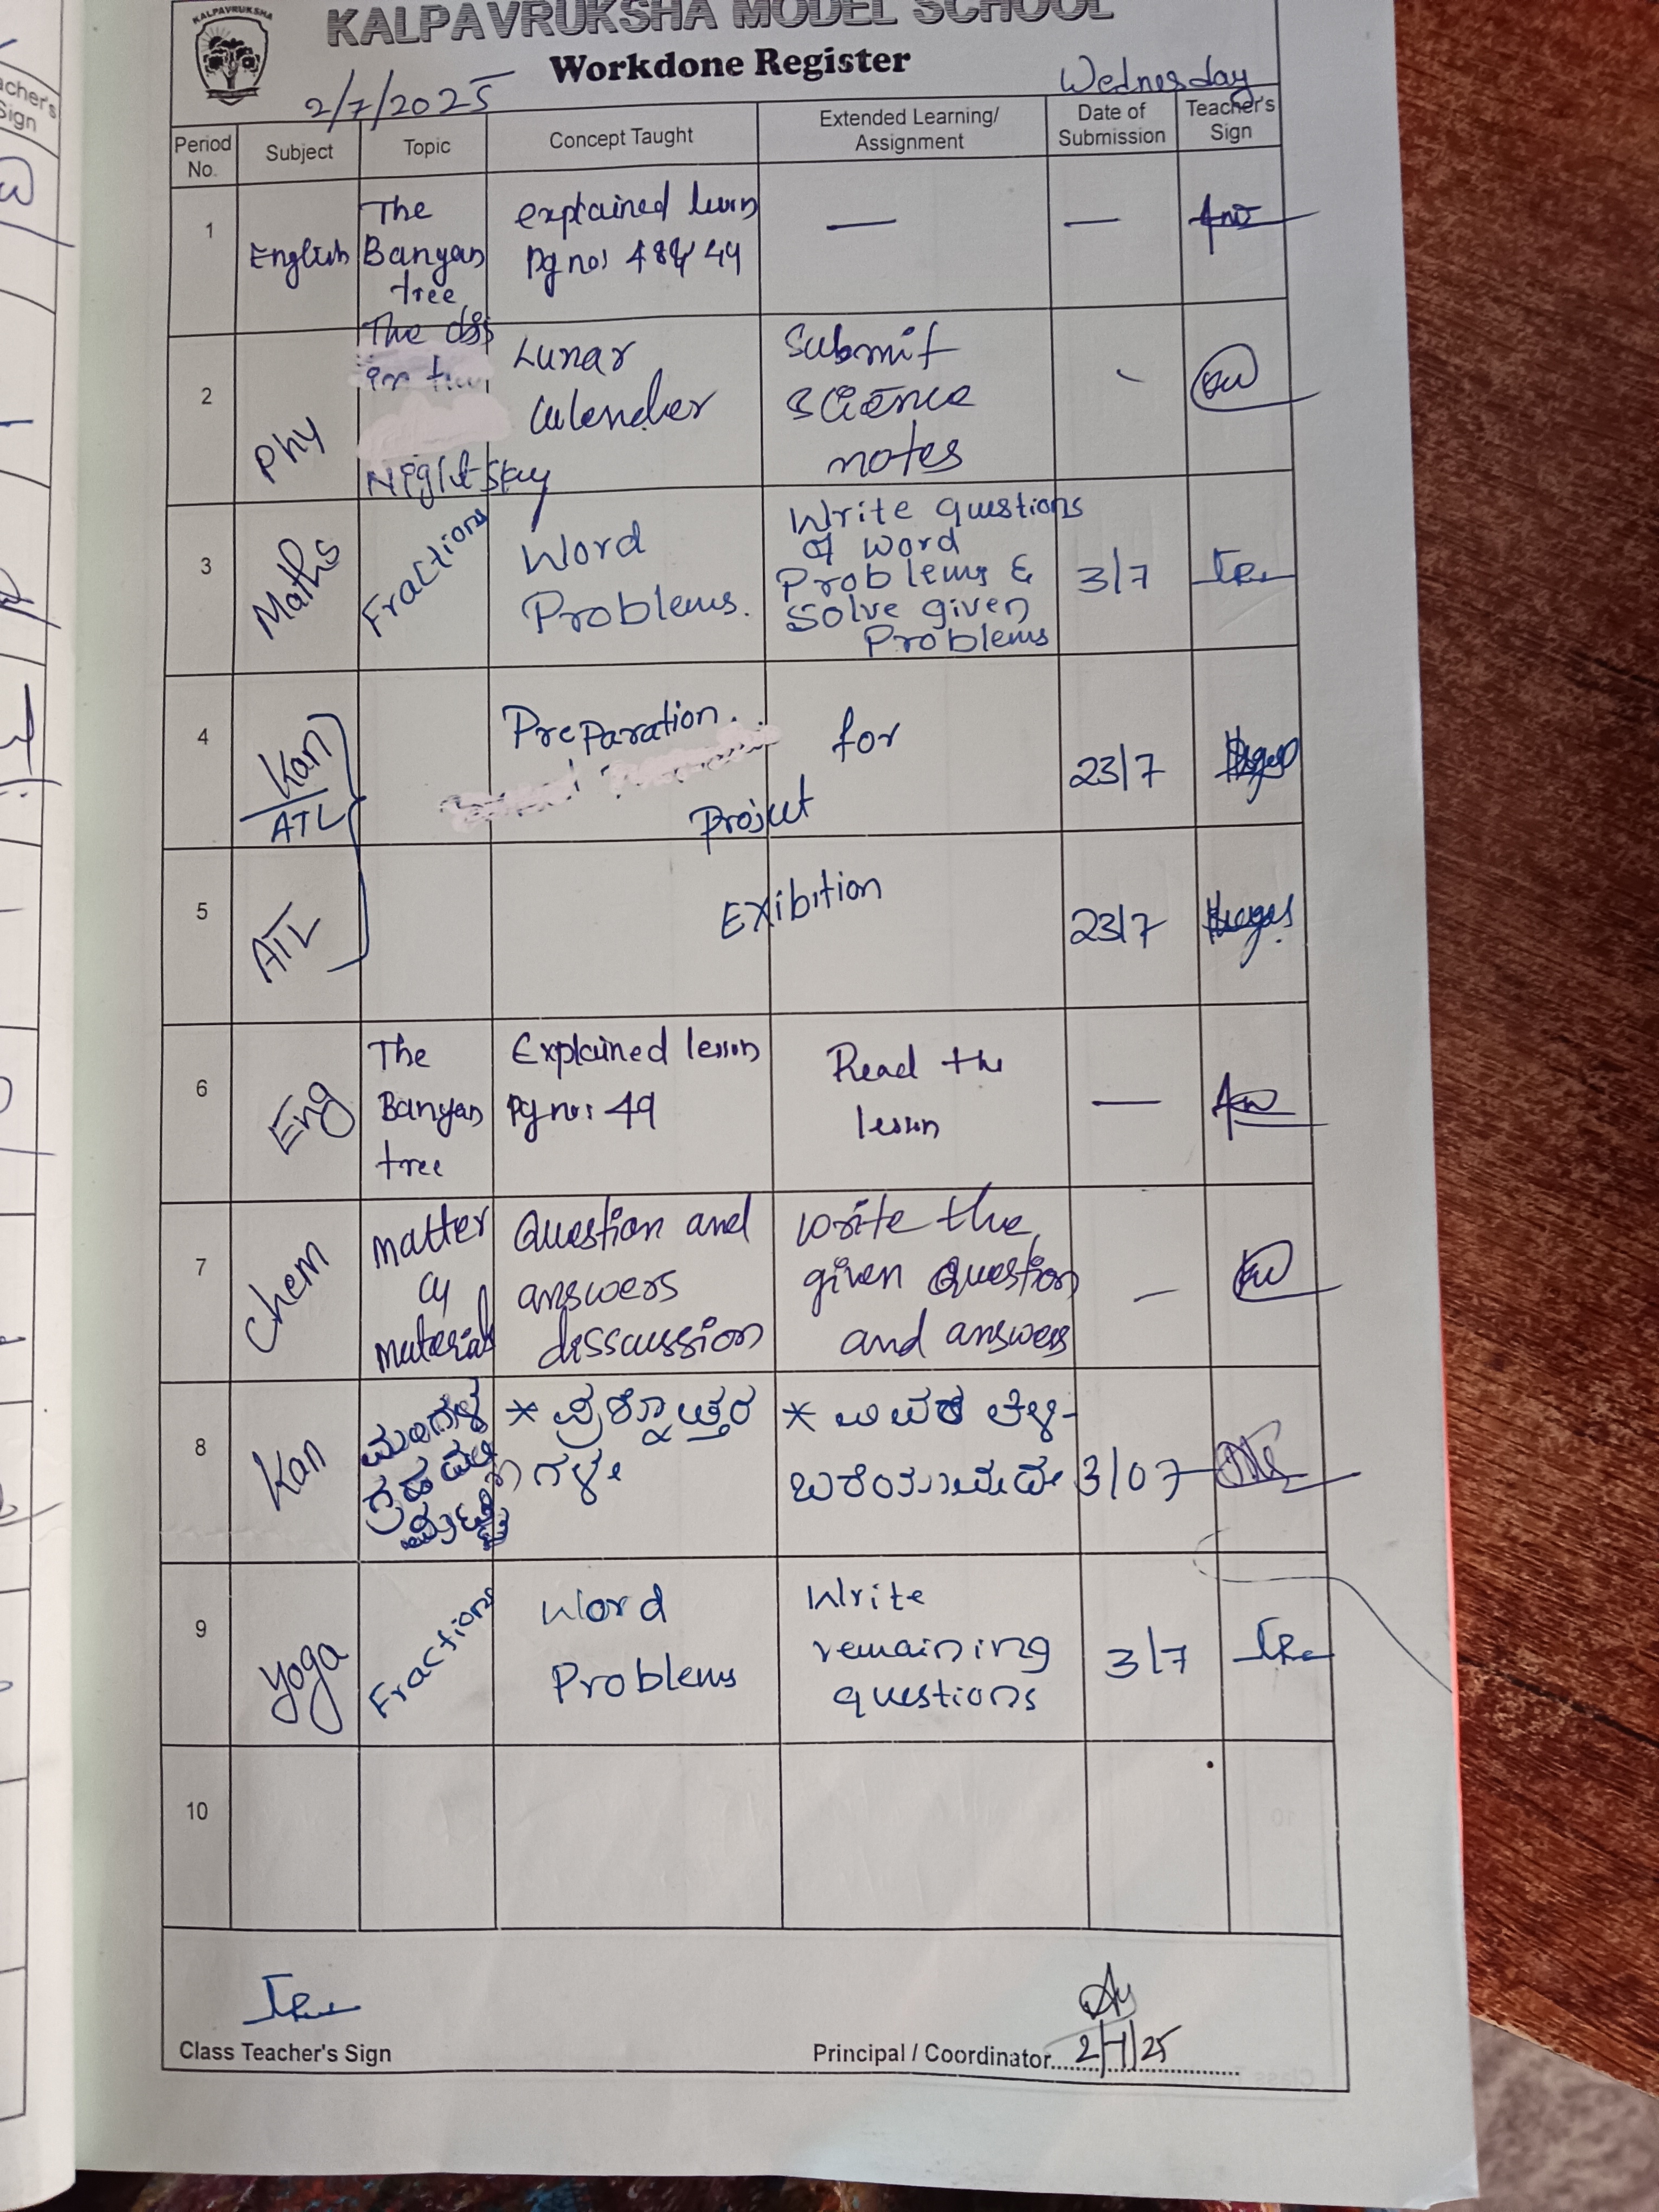 KALPAVRUKSHA
KALPAVRUKSHA MODEL SCHOOL
Workdone Register
2/7/2025
Wednesday
Period No.
Subject
Topic
Concept Taught
Extended Learning/
Assignment
Date of
Submission
Teacher's
Sign
1
English
The
Banyan
tree
explained
Pg no: 48 & 49
—
—
2
Phy
The
Night Sky
Lunar
Calender
Submit
Science
notes
3
Maths
Fractions
Word
Problems.
Write questions
of word
Problems &
Solve given
Problems
3/7
4
Kan
ATL
Preparation
for
Project
23/7
5
ATL
Exibition
23/7
6
Eng
The
Banyan
tree
Explained lesson
Pg no: 49
Read the
lesson
—
7
Chem
Matter
materials
Question and
answers
disscussion
write the
given Question
and answers
–
8
Kan
ಮಂಗಳ
ಗ್ರಹದಲ್ಲಿ
* ಪ್ರಶ್ನೋತ್ತರ
ಗಳು
*
ಬರೆಯುವುದು
3/07
9
Yoga
Fractions
Word
Problems
Write
remaining
questions
3/7
10
Class Teacher's Sign
Principal / Coordinator
2/7/25
cher's
Sign